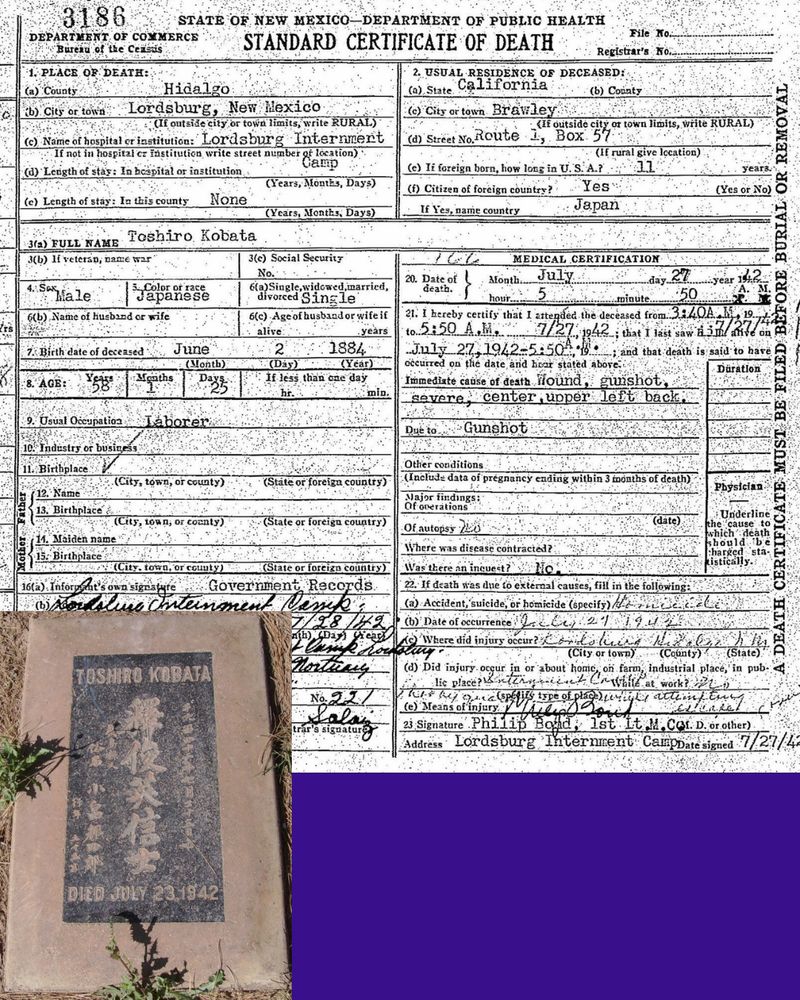 3186
STATE OF NEW MEXICO—DEPARTMENT OF PUBLIC HEALTH
DEPARTMENT OF COMMERCE
Bureau of the Census
STANDARD CERTIFICATE OF DEATH
File No.
Registrar's No.
1. PLACE OF DEATH:
(a) County Hidalgo
(b) City or town Lordsburg, New Mexico
(If outside city or town limits, write RURAL)
(c) Name of hospital or institution: Lordsburg Internment
If not in hospital or institution write street number of location)
Camp
(d) Length of stay: In hospital or institution
(Years, Months, Days)
(e) Length of stay: In this county None
(Years, Months, Days)
2. USUAL RESIDENCE OF DECEASED:
(a) State California (b) County
(c) City or town Brawley
(If outside city or town limits, write RURAL)
(d) Street No. Route 1, Box 57
(If rural give location)
(e) If foreign born, how long in U. S. A.? 11 years.
(f) Citizen of foreign country? Yes (Yes or No)
If Yes, name country Japan
3(a) FULL NAME Toshiro Kobata
3(b) If veteran, name war
3(c) Social Security
No.
4. Sex Male
5. Color or race
Japanese
6(a) Single, widowed, married,
divorced Single
6(b) Name of husband or wife
6(c) Age of husband or wife if
alive years
7. Birth date of deceased June 2 1884
(Month) (Day) (Year)
8. AGE: Years 58 Months 1 Days 25 If less than one day
hr. min.
9. Usual Occupation Laborer
10. Industry or business
11. Birthplace
(City, town, or county) (State or foreign country)
Father
12. Name
13. Birthplace
(City, town, or county) (State or foreign country)
Mother
14. Maiden name
15. Birthplace
(City, town, or county) (State or foreign country)
16(a) Informant's own signature Government Records
(b) Lordsburg Internment Camp
7/28/42
(Day) (Year)
Mortuary
No. 221
trar's signature
166
MEDICAL CERTIFICATION
20. Date of death. Month July day 27 year 1942
hour 5 minute 50 A. M.
P. M.
21. I hereby certify that I attended the deceased from 3:40A.M. 19
to 5:50 A.M. 7/27, 1942; that I last saw him alive on
July 27, 1942-5:50 A.M. 19 ; and that death is said to have
occurred on the date and hour stated above.
Duration
Immediate cause of death Wound, gunshot,
severe, center, upper left back.
Due to Gunshot
Other conditions
(Include data of pregnancy ending within 3 months of death)
Major findings:
Of operations
(date)
Of autopsy No
Where was disease contracted?
Was there an inquest? No.
Physician
Underline
the cause to
which death
should be
charged sta-
tistically.
22. If death was due to external causes, fill in the following:
(a) Accident, suicide, or homicide (specify) Homicide
(b) Date of occurrence July 27 1942
(c) Where did injury occur? Lordsburg Hidalgo N M
(City or town) (County) (State)
(d) Did injury occur in or about home, on farm, industrial place, in pub-
lic place? Internment Camp While at work? No
(specify type of place) while attempting
(e) Means of injury
23 Signature Philip Bond, 1st Lt.M.C. (M. D. or other)
Address Lordsburg Internment Camp Date signed 7/27/42
A DEATH CERTIFICATE MUST BE FILED BEFORE BURIAL OR REMOVAL
TOSHIRO KOBATA
DIED JULY 23, 1942